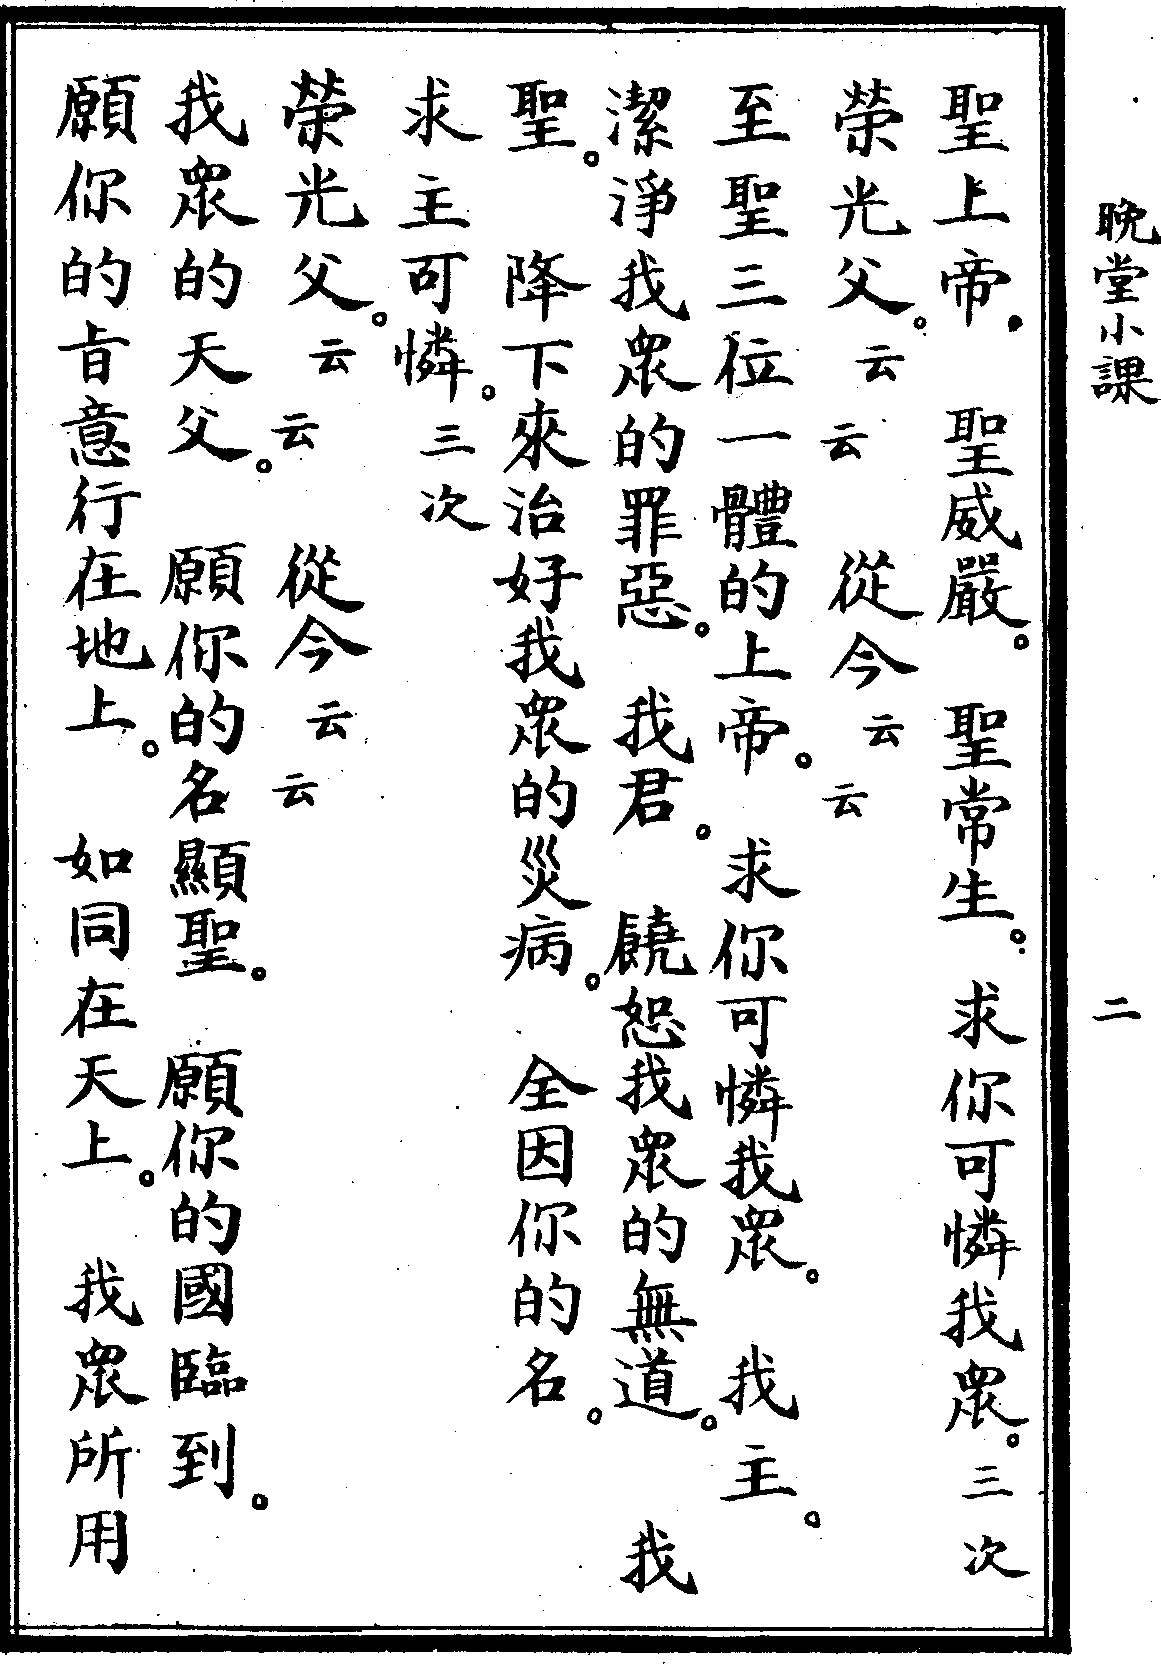 晚堂小課　二
聖上帝。　聖威嚴。　聖常生。　求你可憐我眾。三次
榮光父。云云　從今云云
至聖三位一體的上帝。　求你可憐我眾。　我主。
潔淨我眾的罪惡。　我君。　饒恕我眾的無道。　我
聖。　降下來治好我眾的災病。　全因你的名。
求主可憐。三次
榮光父。云云　從今云云
我眾的天父。　願你的名顯聖。　願你的國臨到。
願你的旨意行在地上。　如同在天上。　我眾所用